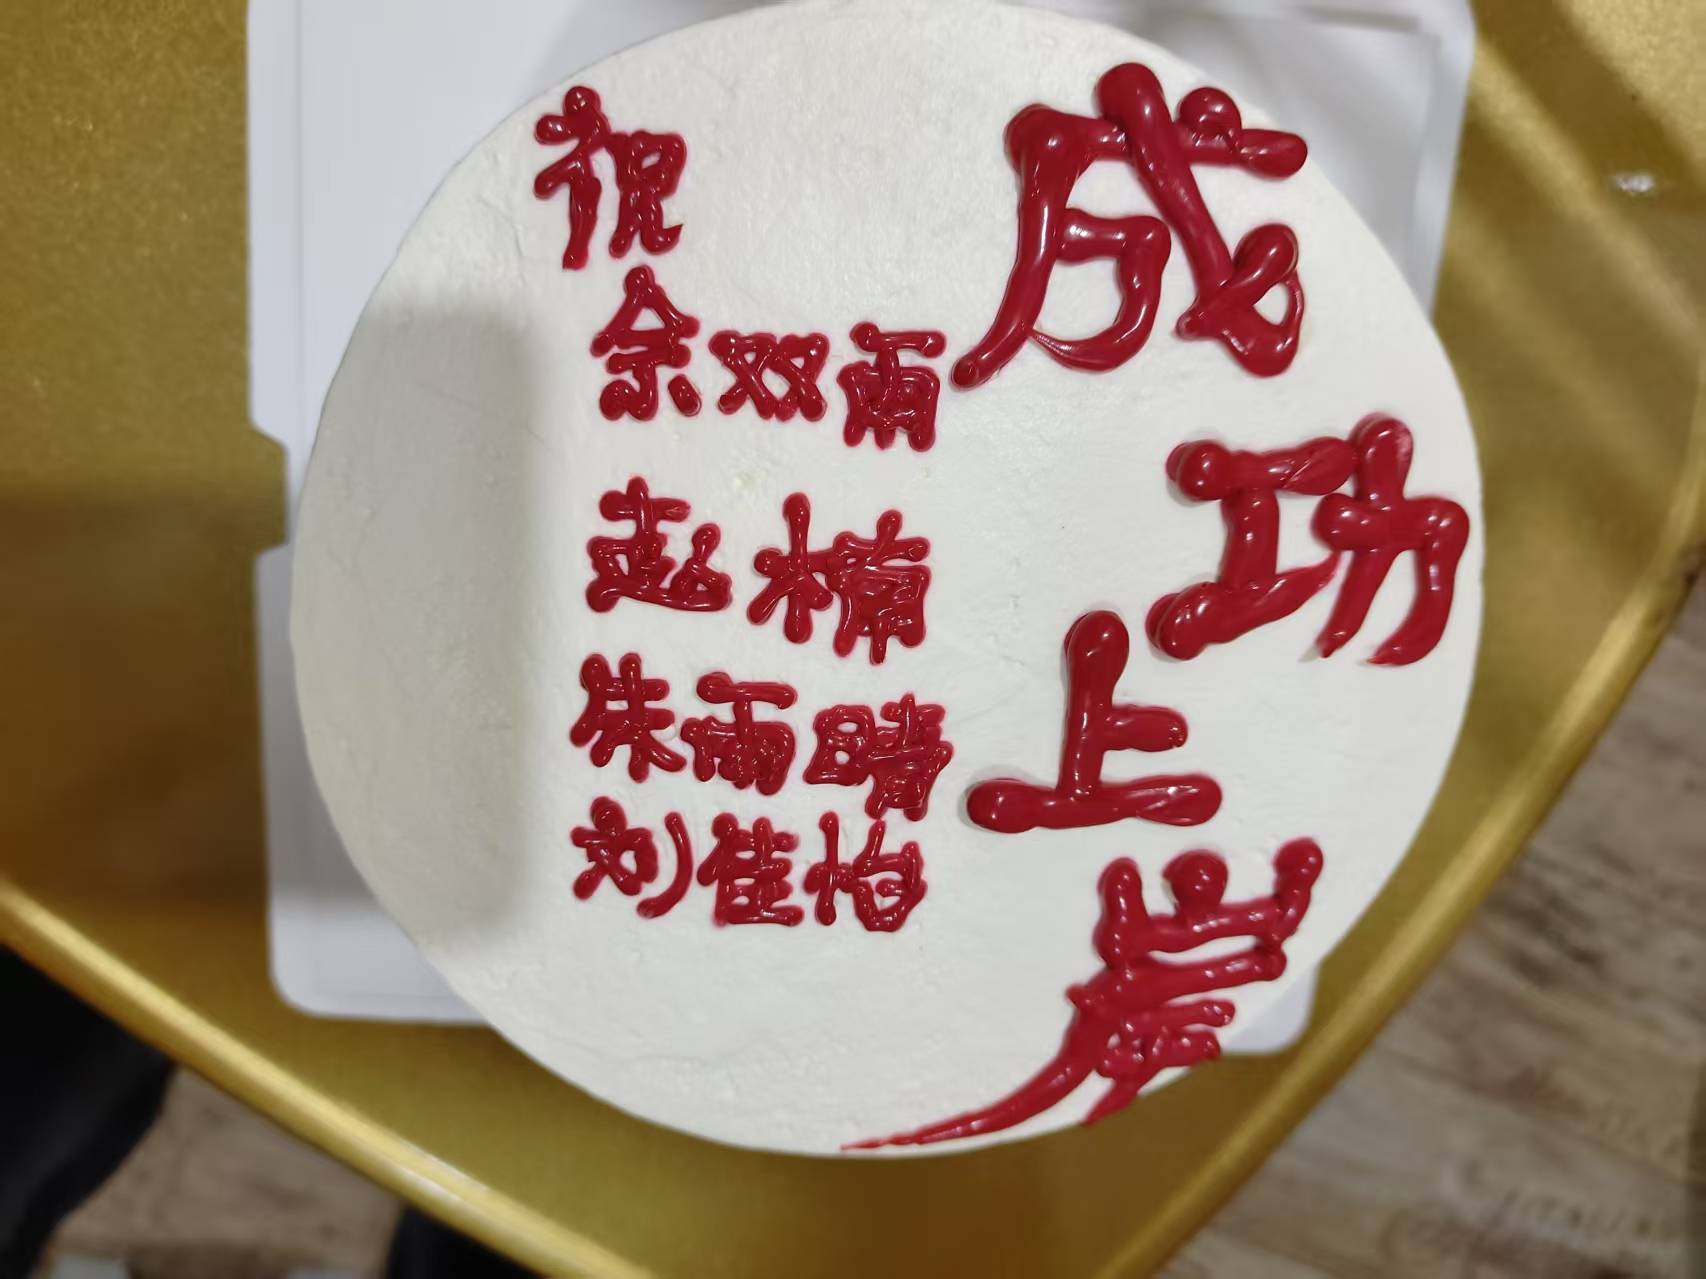 祝
余双雨
赵楠
朱雨晴
刘佳怡
成功上岸